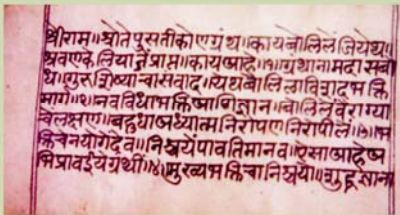 श्रीराम॥श्रोतेपुसतीकोणग्रंथ॥कायबोलिलेंजियेथ॥
श्रवणकेलियानेंप्राप्त॥कायआहे॥१॥ग्रंथानामदासबो
ध॥गुरुशिष्यांचासंवाद॥येथबोलिलाविशदभक्ति
मार्ग॥२॥नवविधाभक्तिआणिज्ञान॥बोलिलेंवैराग्या
चेंलक्षण॥बहुधाअध्यात्मनिरोपणनिरोपीलें॥३॥भ
क्तिचेनयोगेंदेव॥निश्चयेंपावतिमानव॥ऐसाआहेअ
भिप्रावईयेग्रंथीं॥४॥मुख्यभक्तिचानिश्चयो॥शुद्धज्ञाना